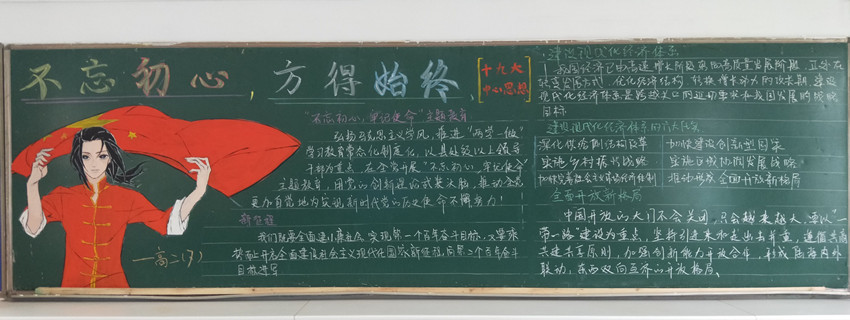 不忘初心，方得始终
十九大
中心思想
"不忘初心，牢记使命"主题教育
弘扬马克思主义学风，推进"两学一做"
学习教育常态化制度化，以县处级以上领导
干部为重点，在全党开展"不忘初心，牢记使命"
主题教育，用党的创新理论武装头脑，推动全党
更加自觉地为实现新时代党的历史使命不懈努力！
新征程
我们既要全面建成小康社会，实现第一个百年奋斗目标，又要乘
势而上开启全面建设社会主义现代化国家新征程，向第二个百年奋斗
目标进军
高二(3)
建设现代化经济体系
我国经济已由高速增长阶段转向高质量发展阶段，正处在
转变发展方式，优化经济结构，转换增长动力的攻关期，建设
现代化经济体系是跨越关口的迫切要求和我国发展的战略
目标
建设现代化经济体系的六大任务
深化供给侧结构改革 加快建设创新型国家
实施乡村振兴战略 实施区域协调发展战略
加快完善社会主义市场经济体制 推动形成全面开放新格局
全面开放新格局
中国开放的大门不会关闭，只会越来越大，要以"一
带一路"建设为重点，坚持引进来和走出去并重，遵循共商
共建共享原则，加强创新能力开放合作，形成陆海内外
联动，东西双向互济的开放格局。